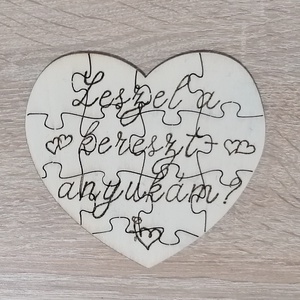 Leszel a
kereszt-
anyukám?